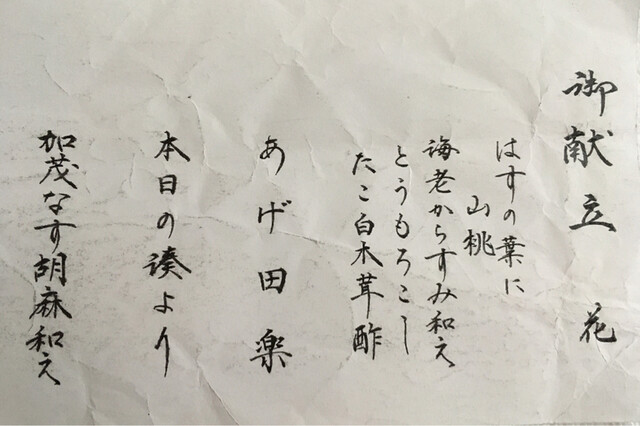 御献立 花
はすの葉に
山桃
海老からすみ和え
とうもろこし
たこ白木茸酢
あげ田楽
本日の湊より
加茂なす胡麻和え